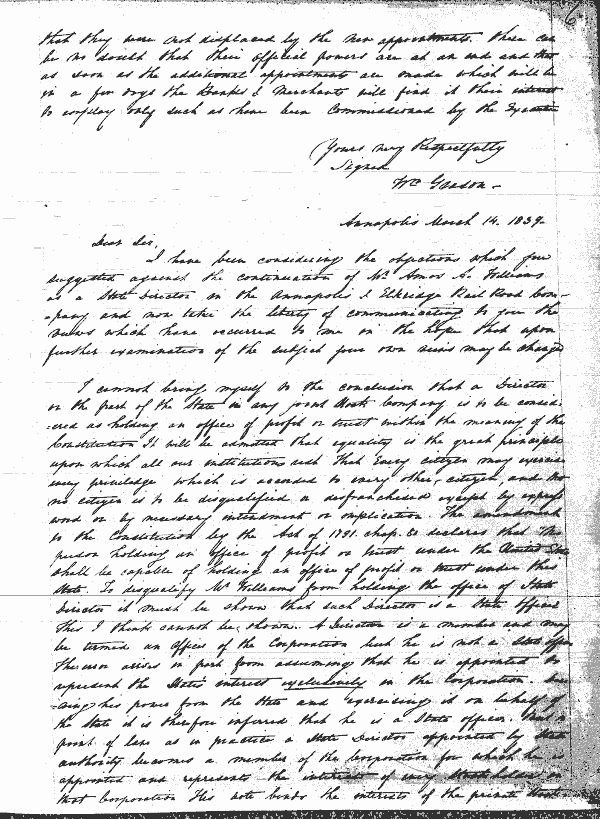 6
that they were not displaced by the new appointments. There can
be no doubt that their official powers are at an end and that
as soon as the additional appointments are made which will be
in a few days the Banks & Merchants will find it their interest
to employ only such as have been Commissioned by the Executive
Yours very Respectfully
Signed
Wm Grason
Annapolis March 14. 1839.
Dear Sir,
I have been considering the objections which you
suggested against the continuation of Mr. Amos A. Williams
as a State Director in the Annapolis & Elkridge Rail Road Com-
-pany and now take the liberty of communicating to you the
views which have occurred to me in the hope that upon
further examination of the subject your own views may be changed
I cannot bring myself to the conclusion that a Director
on the part of the State in any joint Stock Company is to be consid-
-ered as holding an office of profit or trust within the meaning of the
Constitution It will be admitted that equality is the great principle
upon which all our institutions rest That Every citizen may exercise
every priviledge which is accorded to every other citizen, and that
no citizen is to be disqualified or disfranchised except by express
word or by necessary intendment or implication. The amendment
to the Constitution by the Act of 1791. chap. 80 declares that "No
person holding an office of profit or trust under the United States
shall be capable of holding an office of profit or trust under this
State. To disqualify Mr Williams from holding the office of State
Director it must be shown that such Director is a State Officer
This I think cannot be shown. A Director is a member and may
be termed an Officer of the Corporation but he is not a State Officer
The error arises in part from assuming that he is appointed to
represent the State's interest exclusively in the Corporation.
-ing his power from the State and exercising it on behalf of
the State it is therefore inferred that he is a State officer. But in
point of law as in practice a State Director appointed by State
authority becomes a member of the Corporation for which he is
appointed and represents the interests of every Stockholder in
that Corporation His vote binds the interests of the private Stock